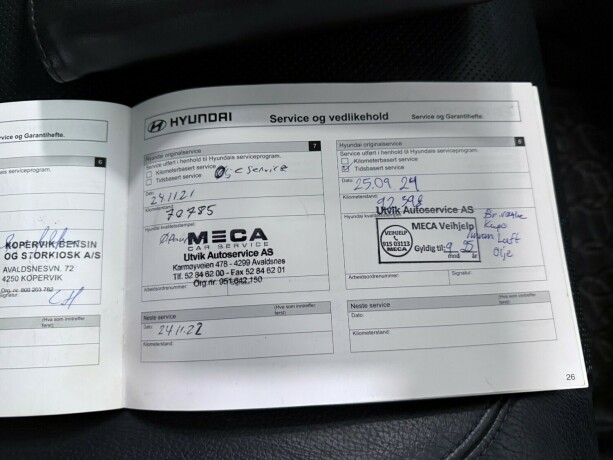 vice og Garantihefte.
6
serviceprogram.
KOPERVIK BENSIN
OG STORKIOSK A/S
AVALDSNESVN. 72
4250 KOPERVIK
Org. nr. 800 203 762
Signatur:
(Hva som inntreffer
først)
HYUNDAI Service og vedlikehold Service og Garantihefte.
Hyundai originalservice 7
Service utført i henhold til Hyundais serviceprogram.
Kilometerbasert service
Tidsbasert service Olje service
Dato:
24.11.21
Kilometerstand:
70785
Hyundai kvalitetsstempel
MECA
CAR SERVICE
Utvik Autoservice AS
Karmøyveien 478 - 4299 Avaldsnes
Tlf. 52 84 62 00 - Fax 52 84 62 01
Org.nr. 951 642 150
Arbeidsordrenummer:
Neste service (Hva som inntreffer
først)
Dato:
24.11.22
Kilometerstand:
Hyundai originalservice 8
Service utført i henhold til Hyundais serviceprogram.
Kilometerbasert service
Tidsbasert service
Dato:
25.09.24
Kilometerstand:
Utvik Autoservice AS
MECA Veihjelp
VEIHJELP
915 03113
MECA
Gyldig til: 9 25
mnd år
Luft
Olje
Arbeidsordrenummer: Signatur:
Neste service (Hva som inntreffer
først)
Dato:
Kilometerstand:
26